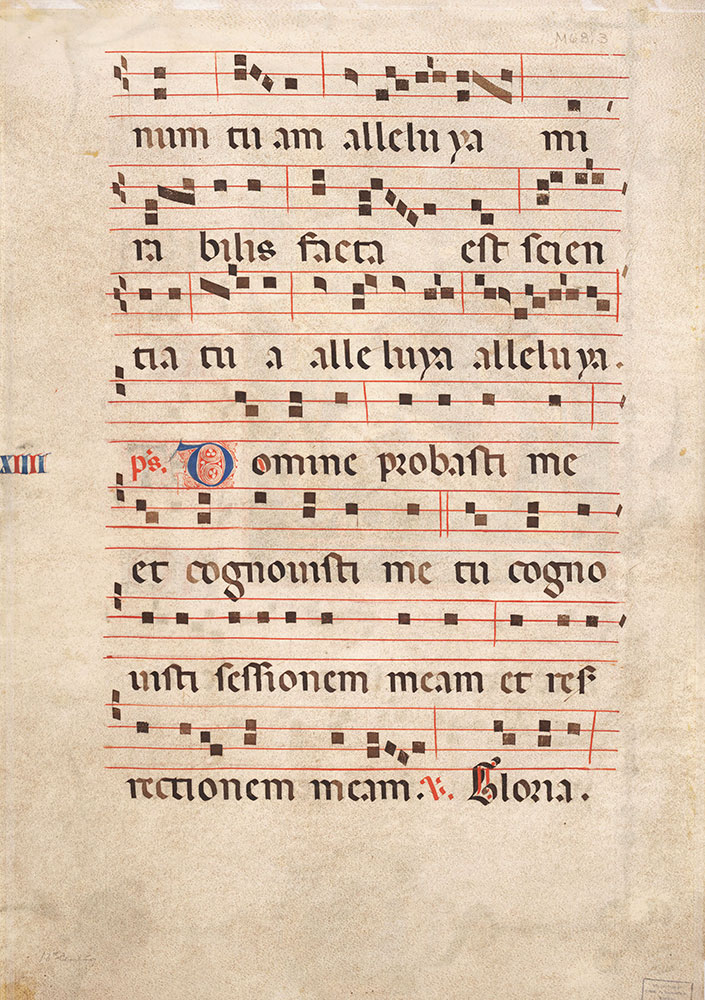 M68:3
num tu am alleluya mi
ra bilis facta est scien
tia tu a alleluya alleluya.
XIIII
ps. Domine probasti me
et cognovisti me tu cogno
visti sessionem meam et res
rectionem meam. V. Gloria.